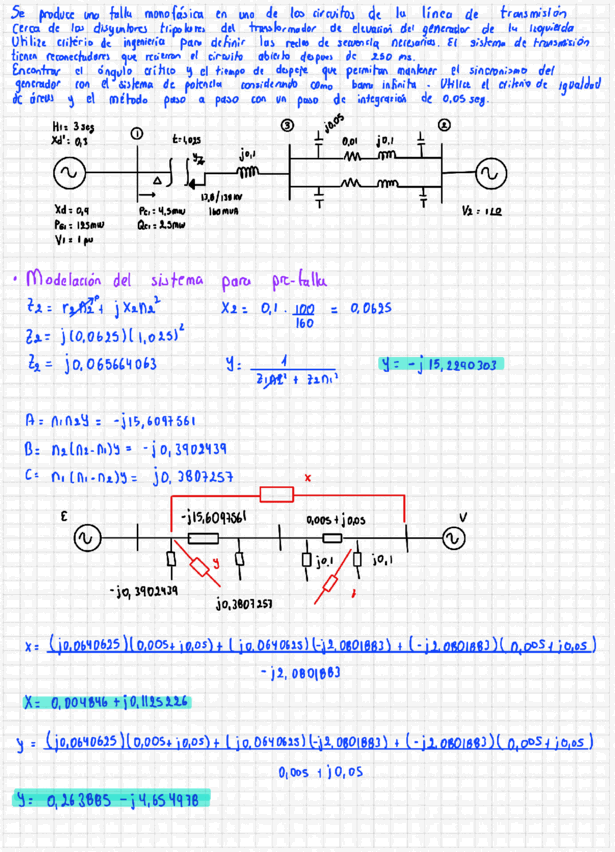 Se produce una falla monofásica en uno de los circuitos de la línea de transmisión
cerca de los disyuntores tripolares del transformador de elevación del generador de la izquierda
Utilize critério de ingeniería para definir las redes de secuencia necesarias. El sistema de transmisión
tienen reconectadores que recierran el circuito abierto despues de 250 ms.
Encontrar el ángulo crítico y el tiempo de despeje que permitan mantener el sincronismo del
generador con el sistema de potencia considerando como barra infinita. Utilice el criterio de igualdad
de áreas y el método paso a paso con un paso de integración de 0,05 seg.
H1 = 3 seg
Xd' = 0,3
①
t=1,025
③
j0,05
②
0,01
j0,1
j0,1
Δ
13,8/138 KV
160 MVA
Xd = 0,9
PG1 = 125mw
V1 = 1 pu
PC1 = 4,5mw
QC1 = 2,5mw
V2 = 1∠0
· Modelación del sistema para pre-falla
Z2 = r2n2² + j X2n2²
X2 = 0,1 · 100/160 = 0,0625
Z2 = j(0,0625)(1,025)²
Z2 = j0,065664063
y = 1 / (Z1n2² + Z2n1²)
y = -j15,2290303
A = n1n2y = -j15,6097561
B = n2(n2-n1)y = -j0,3902439
C = n1(n1-n2)y = j0,3807257
x
E
-j15,6097561
0,005 + j0,05
V
y
j0,1
j0,1
-j0,3902439
j0,3807257
x = (j0,0640625)(0,005+j0,05) + (j0,0640625)(-j2,0801883) + (-j2,0801883)(0,005+j0,05)
-j2,0801883
X = 0,004846 + j0,1125226
y = (j0,0640625)(0,005+j0,05) + (j0,0640625)(-j2,0801883) + (-j2,0801883)(0,005+j0,05)
0,005 + j0,05
y = 0,263885 - j4,654978